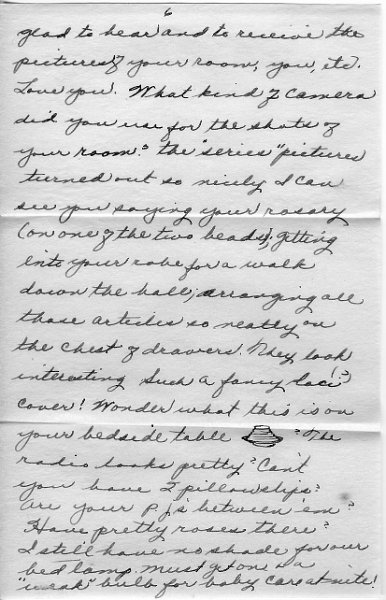 6
glad to hear and to receive the
pictures of your room, you, etc.
Love you. What kind of camera
did you use for the shots of
your room? the "series" pictures
turned out so nicely I can
see you saying your rosary
(on one of the two beads), getting
into your robe for a walk
down the hall; arranging all
those articles so neatly on
the chest of drawers. They look
interesting Such a fancy laci(?)
cover! Wonder what this is on
your bedside table ? The
radio looks pretty? Can't
you have 2 pillowslips?
are your pj's between 'em?
Have pretty roses there?
I still have no shade for our
bed lamp. must get one &
"weak" bulb for baby care at nite!